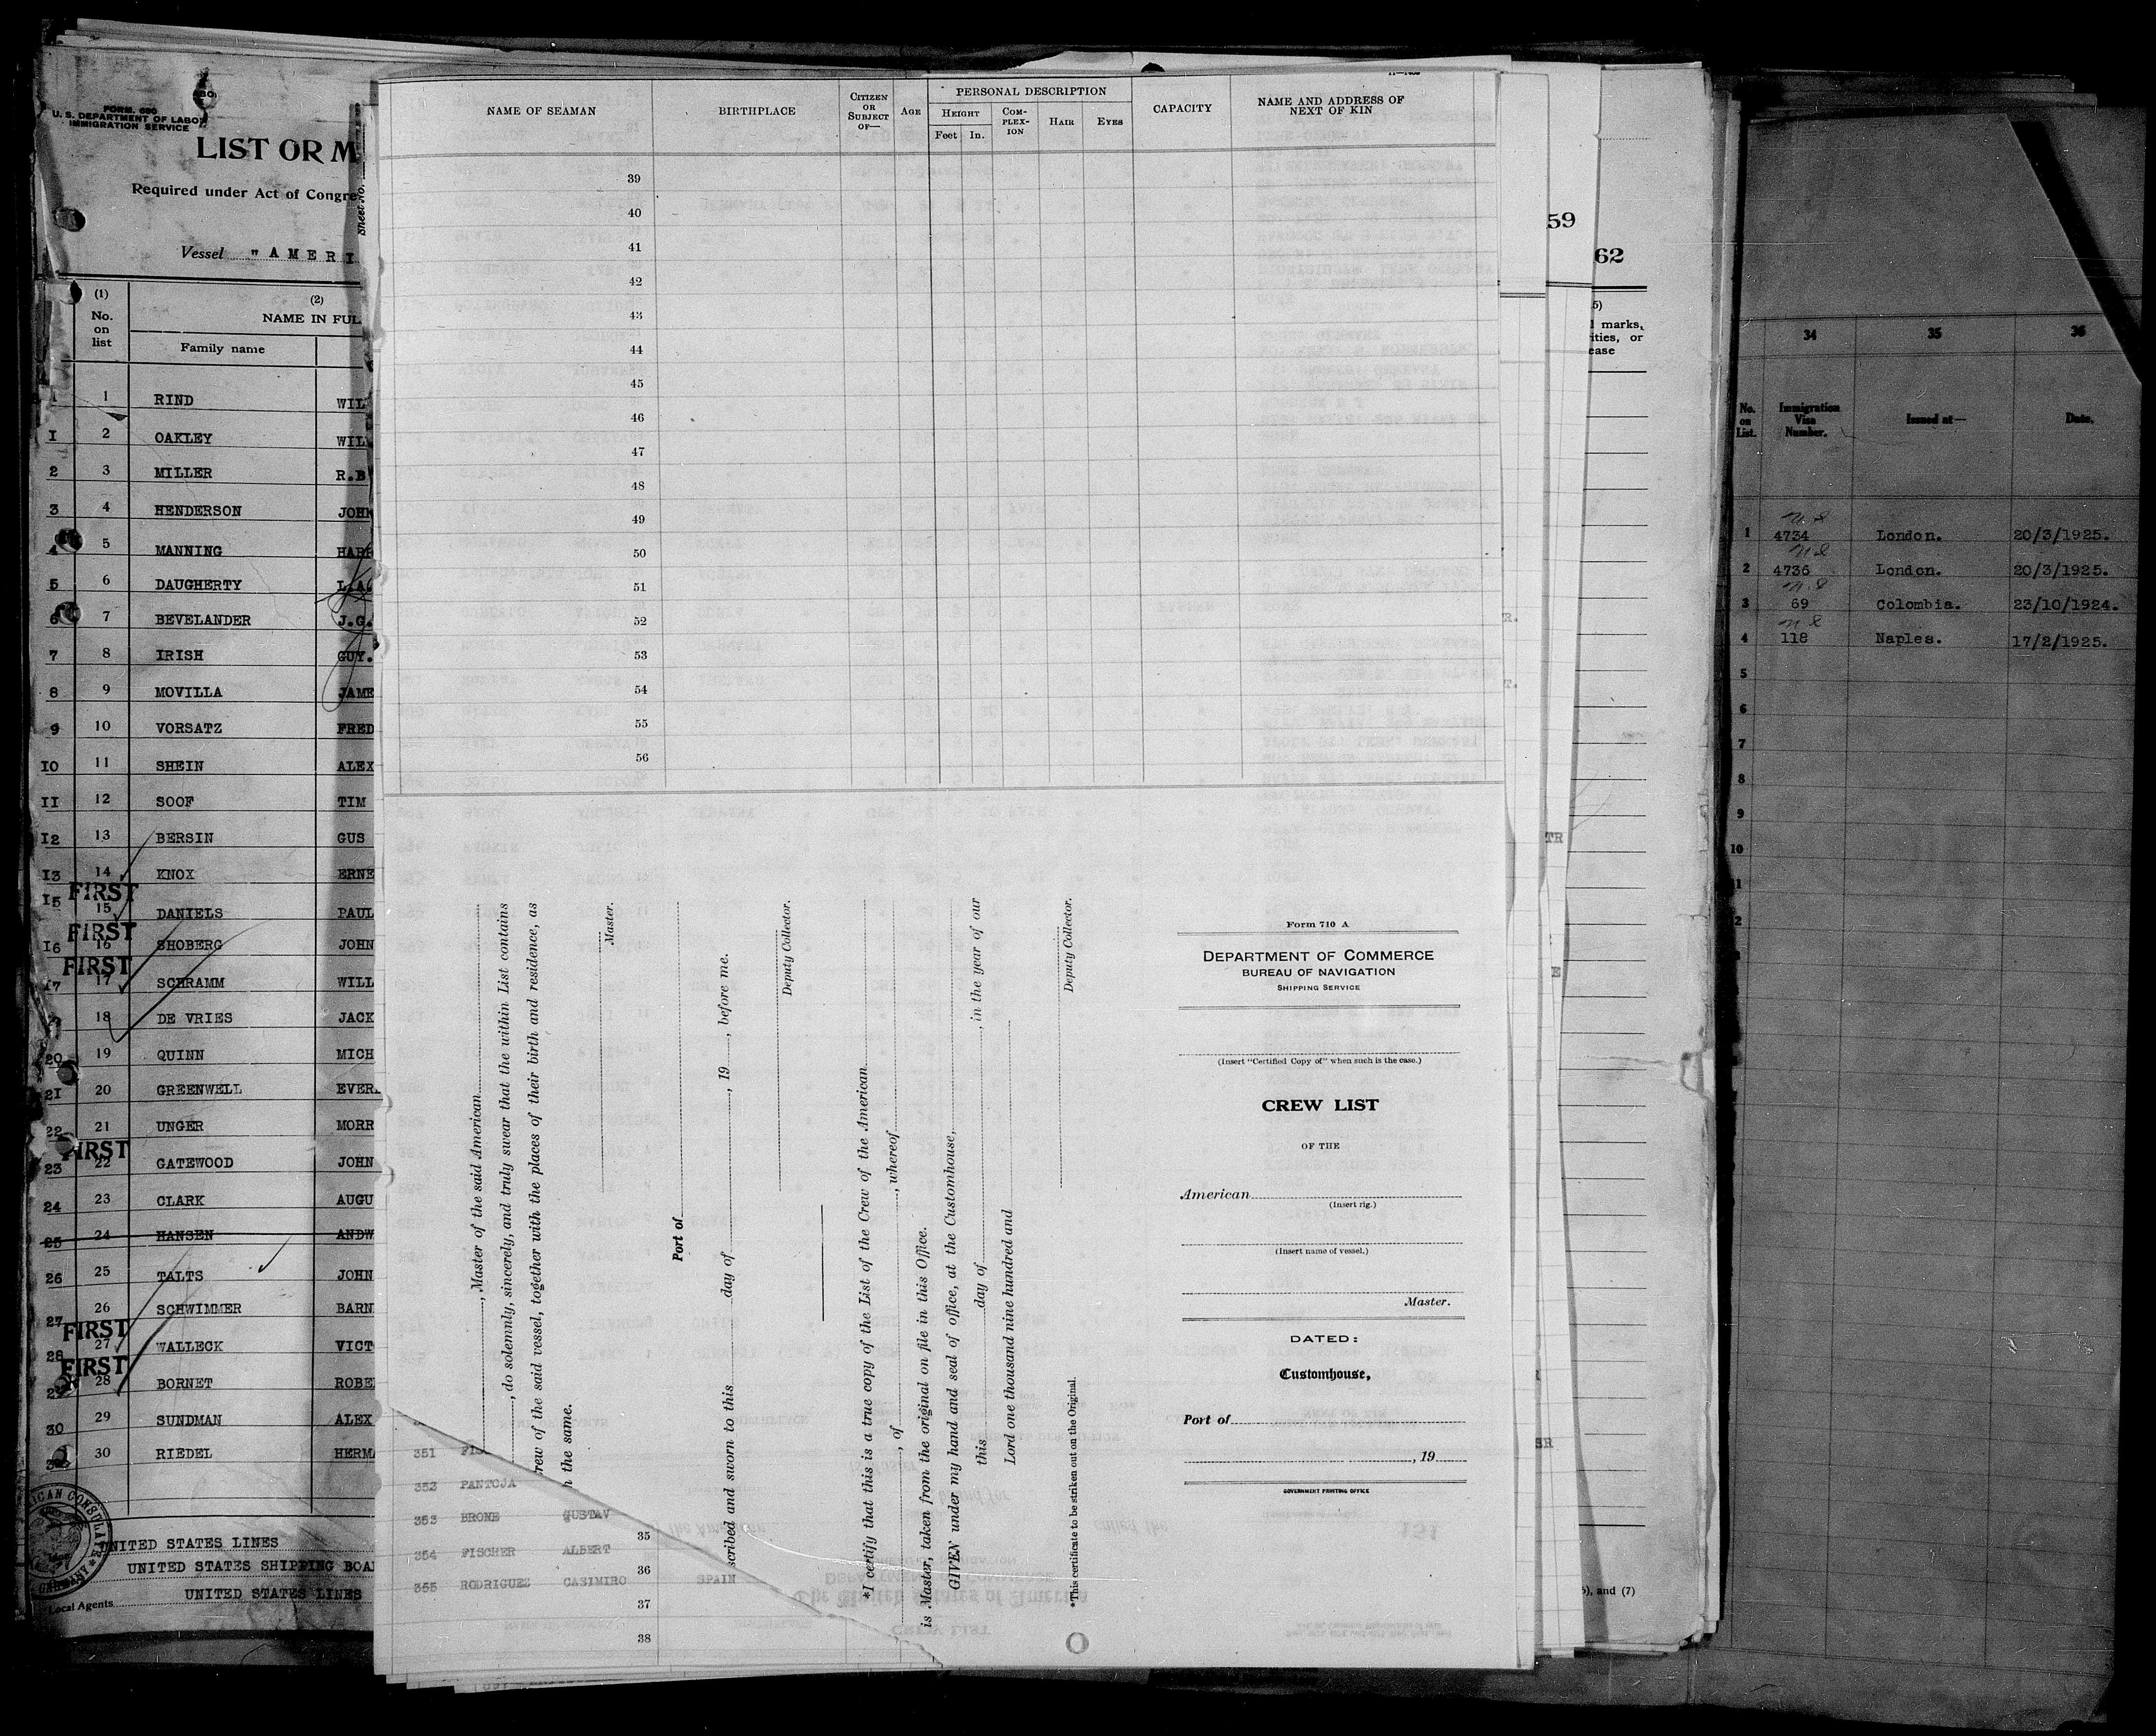 FORM. 680
U. S. DEPARTMENT OF LABOR
IMMIGRATION SERVICE
LIST OR M
Required under Act of Congre
Vessel "AMERI
(1)
No.
on
list
(2)
NAME IN FUL
Family name
1 1 RIND WIL
I 2 OAKLEY WIL
2 3 MILLER R.B
3 4 HENDERSON JOHN
4 5 MANNING HARR
5 6 DAUGHERTY L.A
6 7 BEVELANDER J.G.
7 8 IRISH GUY.
8 9 MOVILLA JAME
9 10 VORSATZ FRED
IO 11 SHEIN ALEX
II 12 SOOF TIM
I2 13 BERSIN GUS
I3 14 KNOX ERNE
FIRST
I5 15 DANIELS PAUL
FIRST
I6 16 SHOBERG JOHN
FIRST
I7 17 SCHRAMM WILL
18 DE VRIES JACK
20 19 QUINN MICH
21 20 GREENWELL EVER
22 21 UNGER MORR
FIRST
23 22 GATEWOOD JOHN
24 23 CLARK AUGU
25 24 HANSEN ANDW
26 25 TALTS JOHN
27 26 SCHWIMMER BARN
FIRST
28 27 WALLECK VICT
FIRST
29 28 BORNET ROBE
30 29 SUNDMAN ALEX
30 RIEDEL HERMA
ICAN CONSULATE
GERMANY
UNITED STATES LINES
UNITED STATES SHIPPING BOA
Local Agents UNITED STATES LINES
Sheet No.
NAME OF SEAMAN
BIRTHPLACE
CITIZEN
OR
SUBJECT
OF—
AGE
PERSONAL DESCRIPTION
HEIGHT
Feet In.
COM-
PLEX-
ION
HAIR
EYES
CAPACITY
NAME AND ADDRESS OF
NEXT OF KIN
39
40
41
42
43
44
45
46
47
48
49
50
51
52
53
54
55
56
, Master of the said American
, do solemnly, sincerely, and truly swear that the within List contains
rew of the said vessel, together with the places of their birth and residence, as
n the same.
Master.
Port of
scribed and sworn to this day of , 19 , before me.
Deputy Collector.
*I certify that this is a true copy of the List of the Crew of the American
, of , whereof
is Master, taken from the original on file in this Office.
GIVEN under my hand and seal of office, at the Customhouse,
this day of , in the year of our
Lord one thousand nine hundred and
Deputy Collector.
*This certificate to be striken out on the Original.
Form 710 A
DEPARTMENT OF COMMERCE
BUREAU OF NAVIGATION
SHIPPING SERVICE
(Insert "Certified Copy of" when such is the case.)
CREW LIST
OF THE
American
(Insert rig.)
(Insert name of vessel.)
Master.
DATED:
Customhouse,
Port of
, 19
GOVERNMENT PRINTING OFFICE
351
352 PANTOJA
353 BRONE GUSTAV
35
354 FISCHER ALBERT
36
355 RODRIGUEZ CASIMIRO SPAIN
37
38
59
62
5)
l marks,
ities, or
ease
R.
T.
TR
E
SR
), and (7)
34
35
36
No.
on
List.
Immigration
Visa
Number.
Issued at—
Date.
1 4734 London. 20/3/1925.
2 4736 London. 20/3/1925.
3 69 Colombia. 23/10/1924.
4 118 Naples. 17/2/1925.
5
6
7
8
9
10
1
2
3